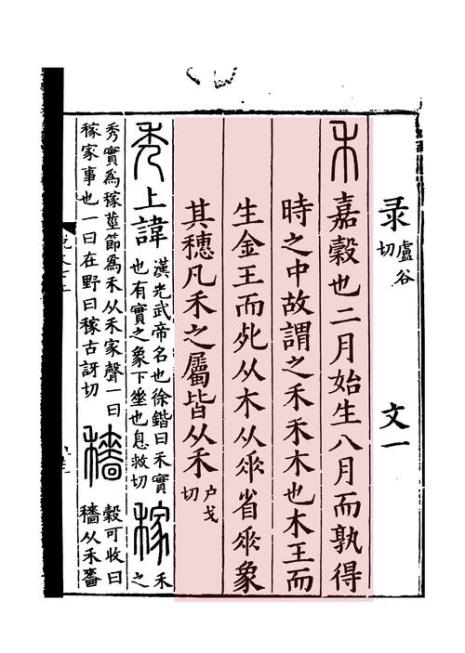 彔盧谷切 文一
禾嘉穀也二月始生八月而孰得
時之中故謂之禾禾木也木王而
生金王而𣦸从木从𠂹省𠂹象
其穗凡禾之屬皆从禾户戈切
秀上諱漢光武帝名也徐鍇曰禾實也有實之象下𡍮也息救切稼禾之
秀實爲稼莖節爲禾从禾家聲一曰稼家事也一曰在野曰稼古訝切穡穀可收曰穡从禾嗇